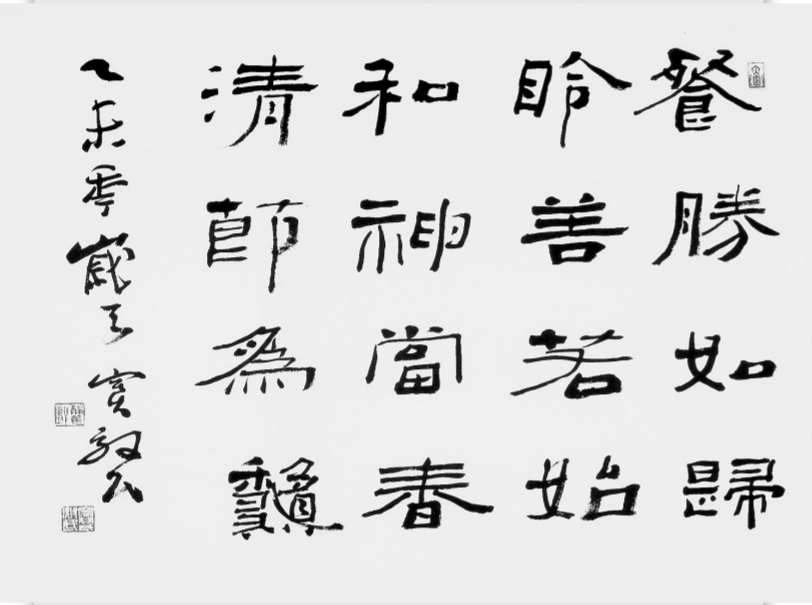 餐勝如歸
聆善若始
和神當春
清節為龝
乙未季歲